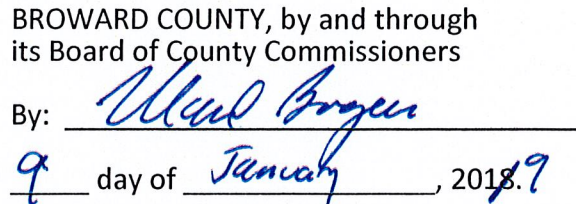 BROWARD COUNTY, by and through
its Board of County Commissioners
By: Mark Bogen
9 day of January, 2018. 19